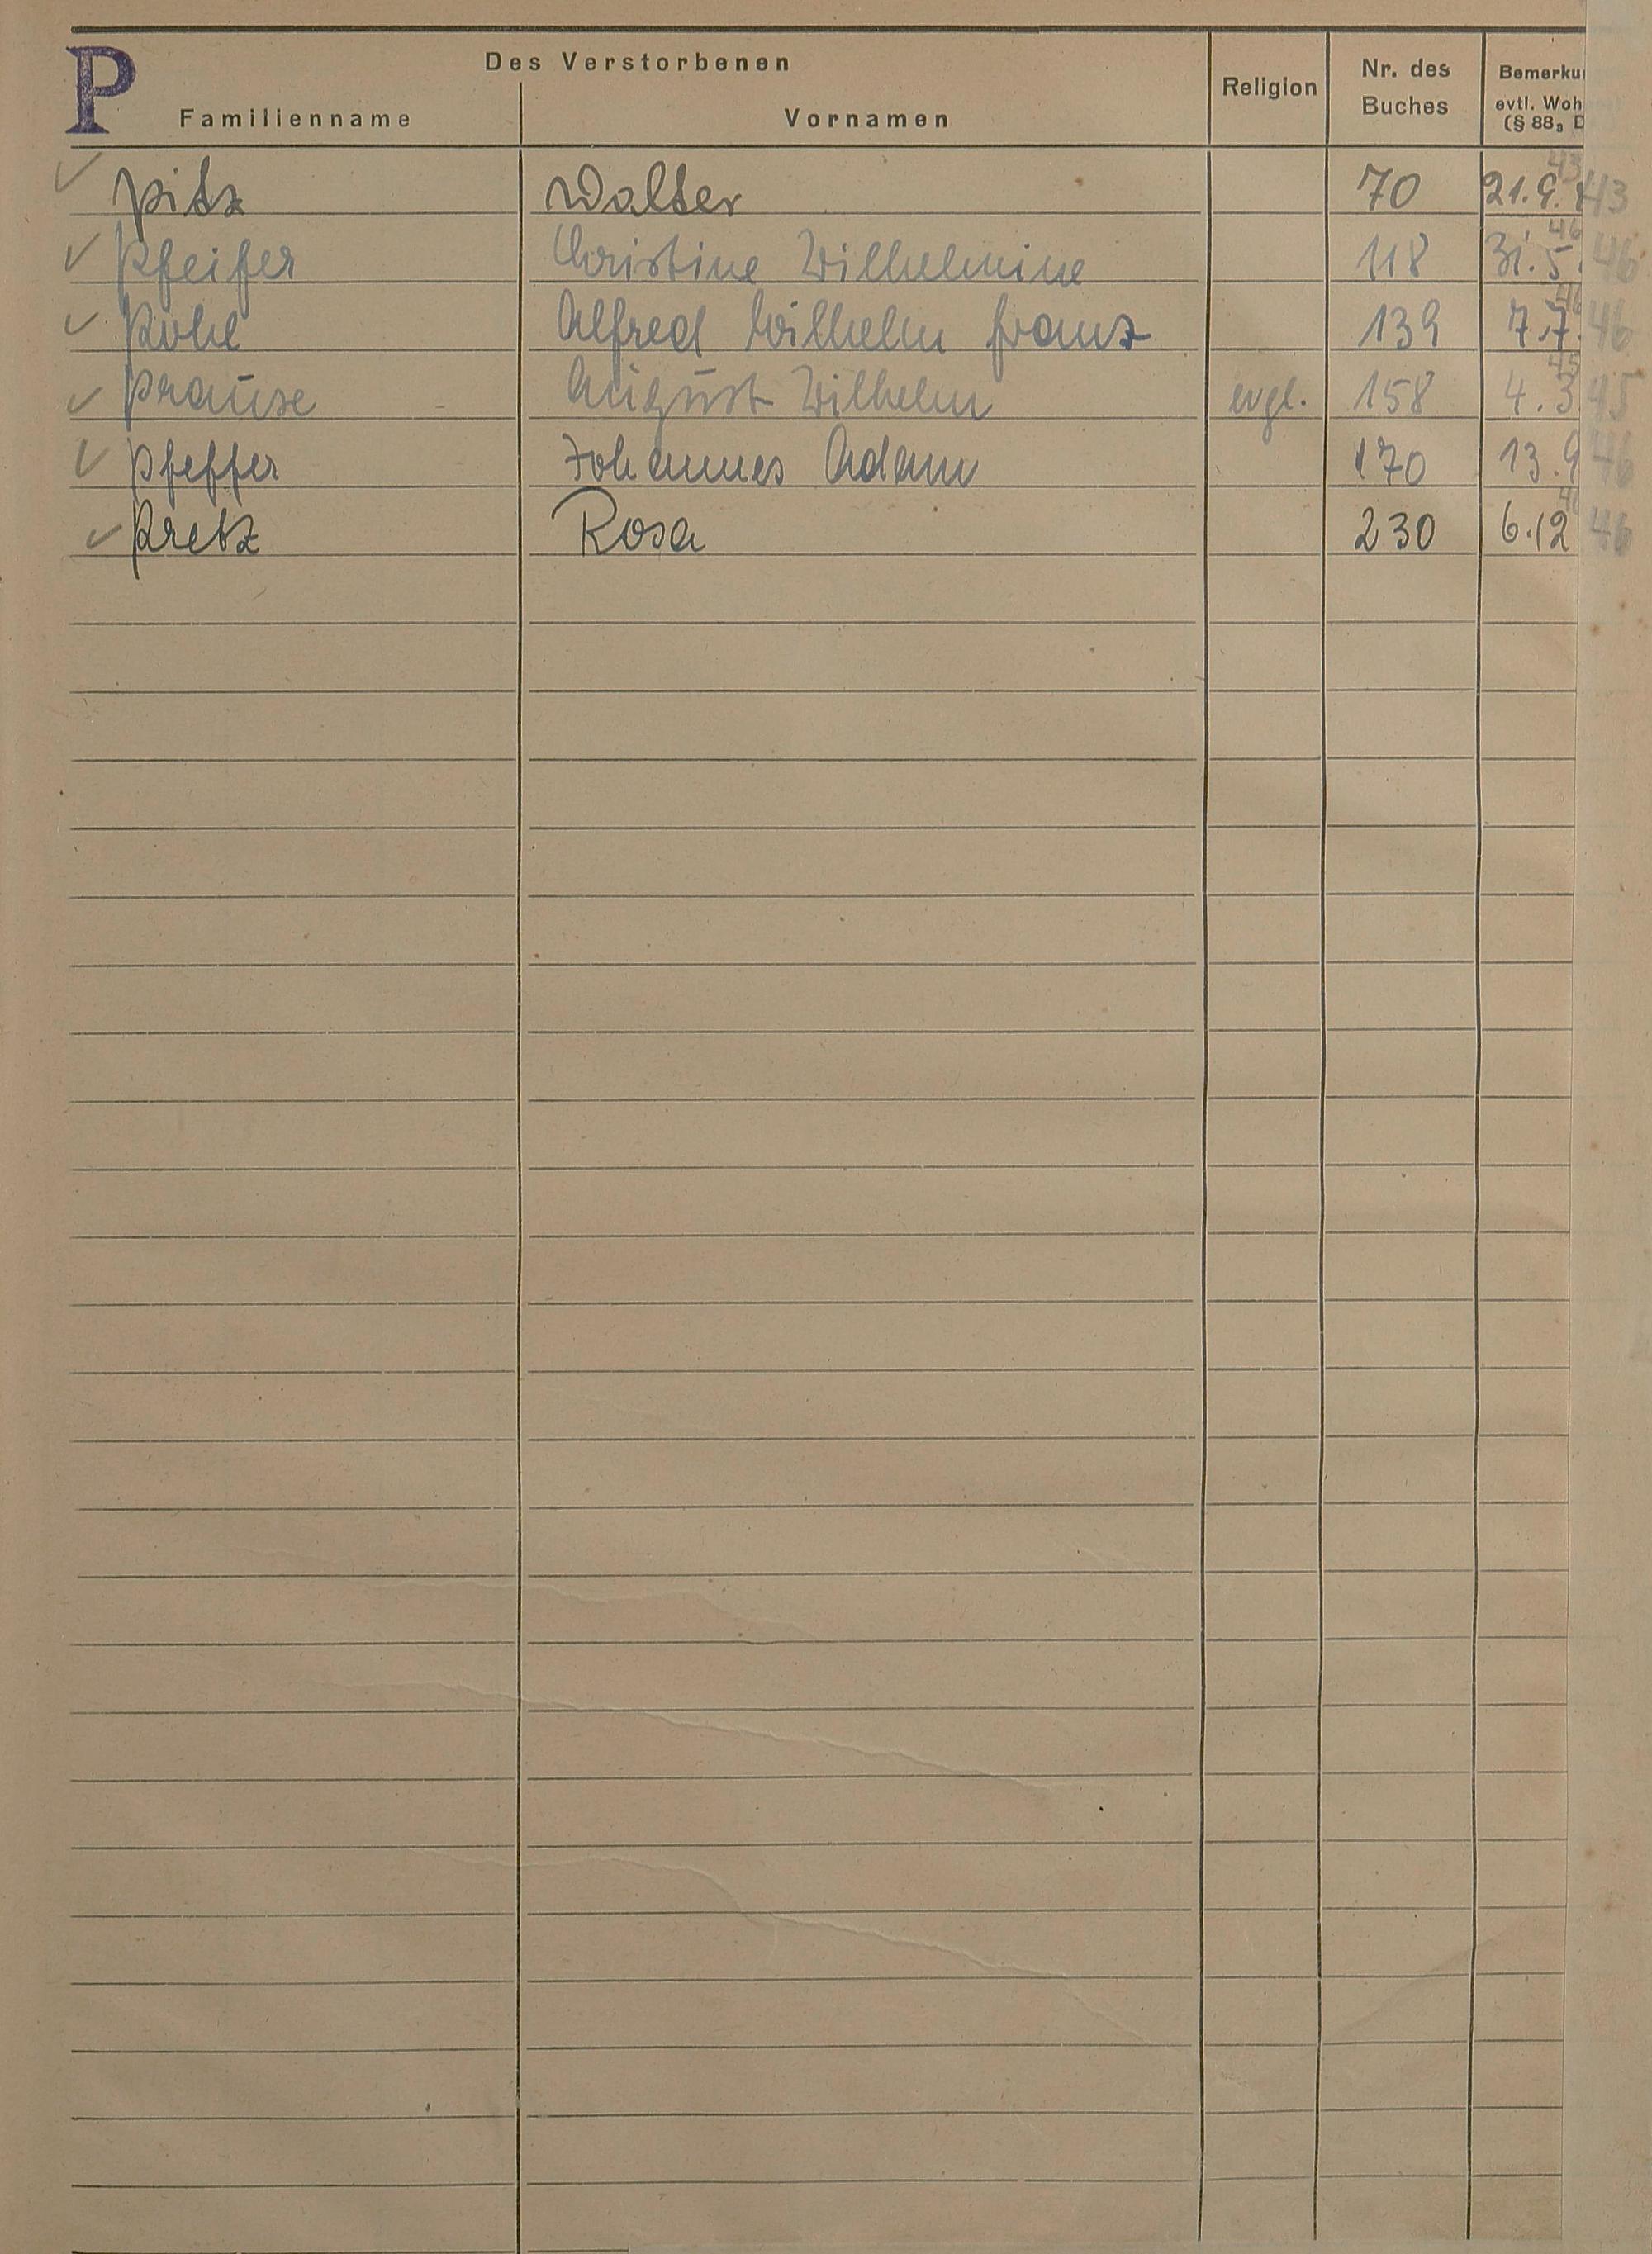 P
Des Verstorbenen
Familienname Vornamen Religion Nr. des Buches Bemerku evtl. Woh (§ 88, D
✓ Pitz Walter 70 21.9. 43 43
✓ Pfeifer Christine Wilhelmine 118 31.5. 46 46
✓ Pohl Alfred Wilhelm Franz 139 7.7. 46 46
✓ Prause August Wilhelm evgl. 158 4.3 45 45
✓ Pfeffer Johannes Adam 170 13.9 46
✓ Pretz Rosa 230 6.12 46